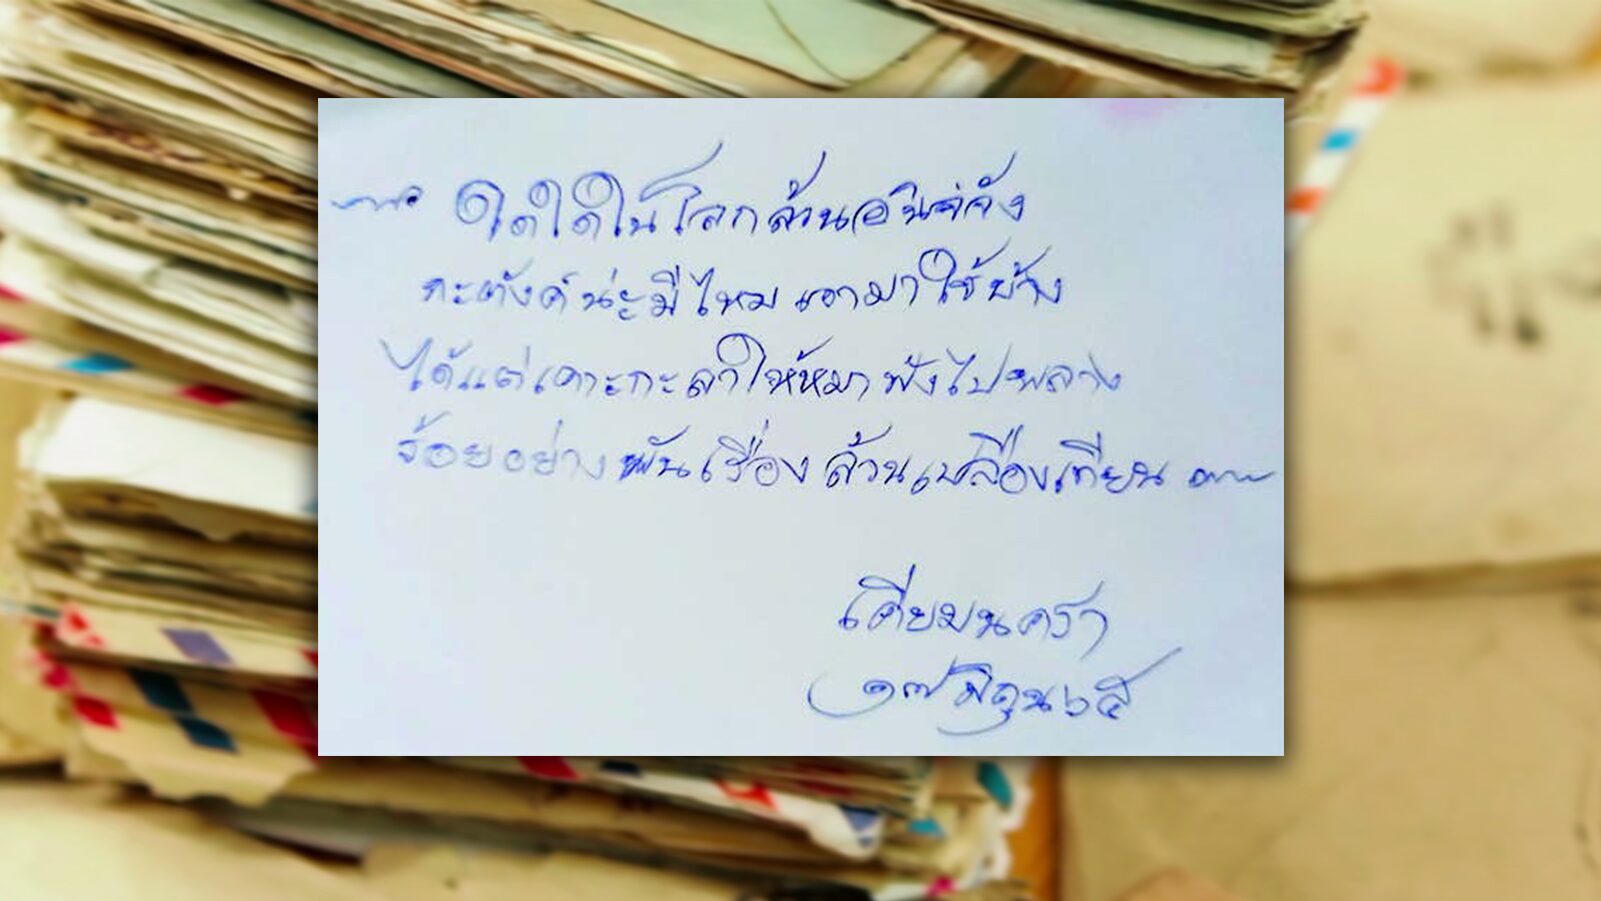 ใดใดในโลกล้วนอนิจจัง
กะตังค์น่ะมีไหมเอามาใช้บ้าง
ได้แต่เคาะกะลาให้หมาฟังไปพลาง
ร้อยอย่างพันเรื่องล้วนเปลืองเทียน
เตียมนครา
๑๗ มิถุน ๖๕